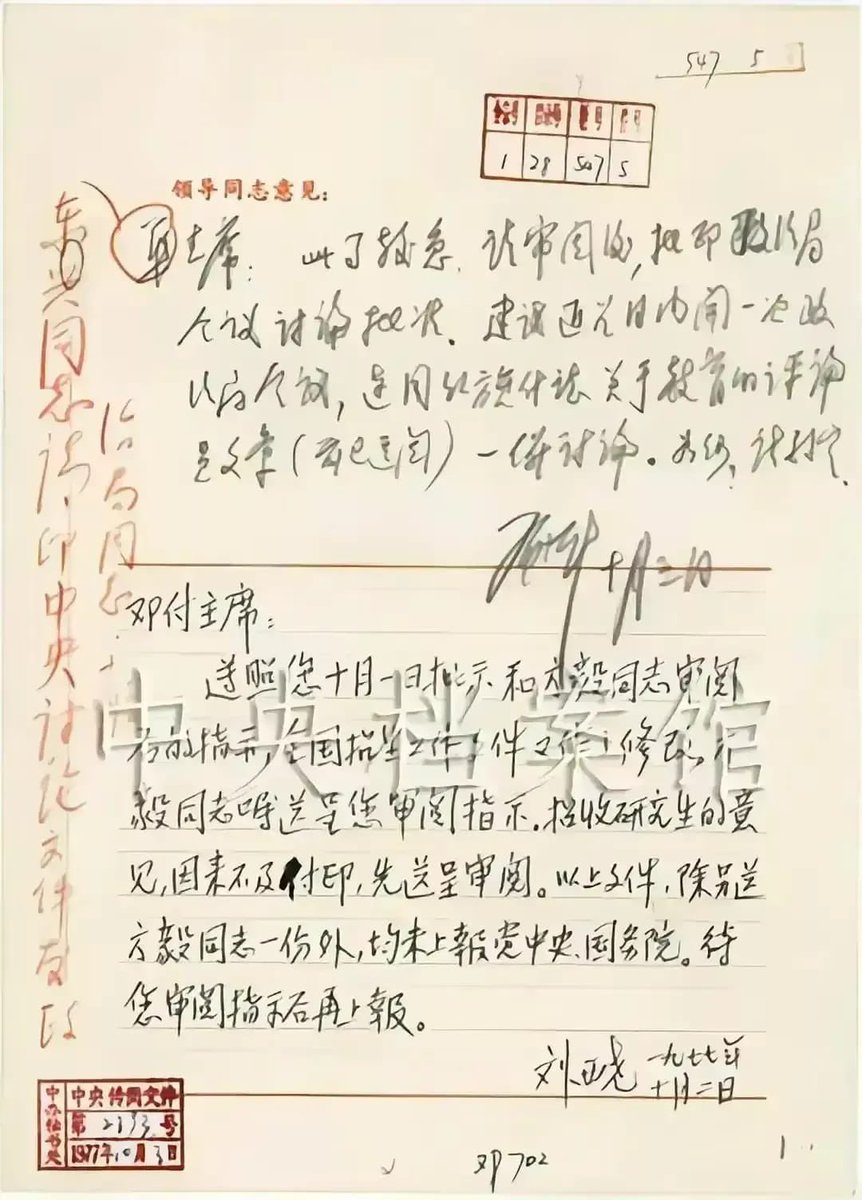 547 5
全宗号 目录号 卷号 件号
1 28 507 5
领导同志意见：
华主席：此事较急，请审阅后，批印政治局
会议讨论批准。建议近几日内开一次政
治局会议，连同红旗什誌关于教育的评论
员文章（前已送阅）一併讨论。如何，请批示。
十月三日
东兴同志：请印中央讨论文件发政
治局同志。
邓付主席：
遵照您十月一日批示和方毅同志审阅
后的指示，全国招生工作文件又作了修改。方
毅同志嘱送呈您审阅指示。招收研究生的意
见，因来不及付印，先送呈审阅。以上文件，除另送
方毅同志一份外，均未上報党中央、国务院。待
您审阅指示后再上報。
刘西尧 一九七七年
十月二日
中央档案馆
中办秘书处
中央传阅文件
第2193号
1977年10月3日
邓702